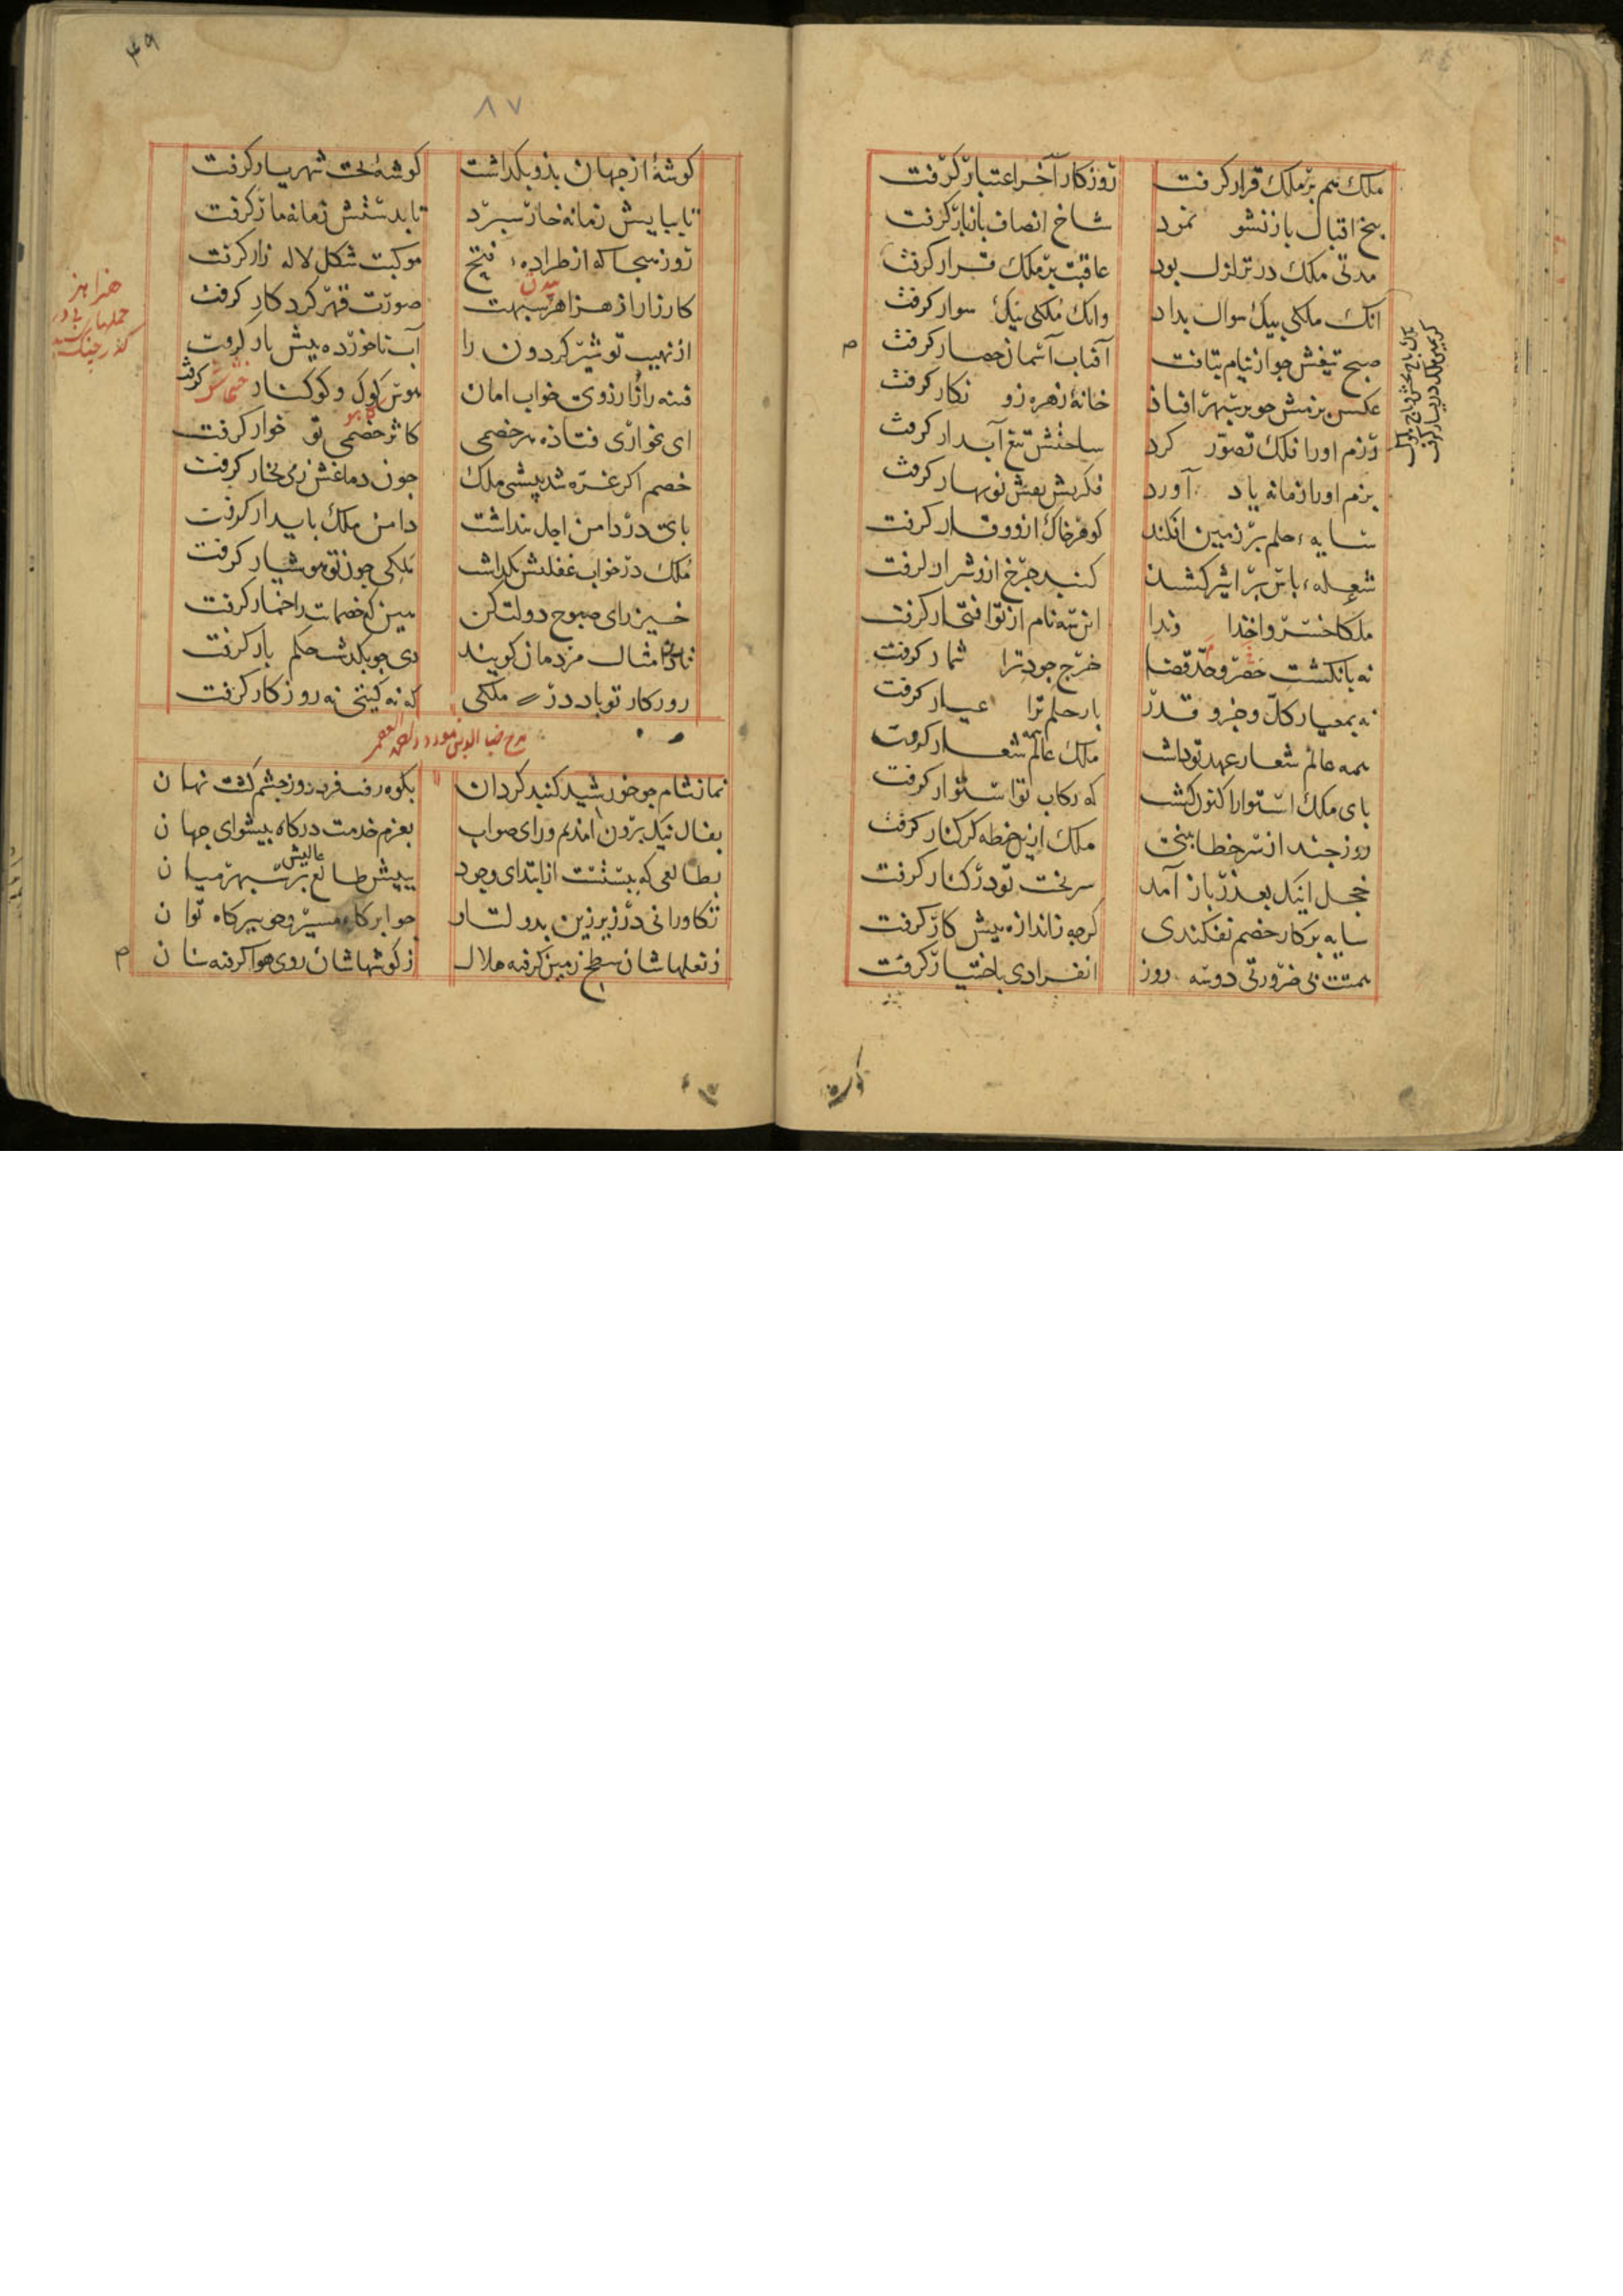 ملک هم بر ملک قرار گرفت روزگار آخر اعتبار گرفت
بیخ اقبال باز نشو نمود شاخ انصاف باز بار گرفت
مدتی ملک در تزلزل بود عاقبت بر ملک قرار گرفت
انک ملکی بیک سوال بداد وانک ملکی بیک سوار گرفت
صبح تیغش جو از نیام بتافت آفتاب آسمان حصار گرفت
عکس بزمش جو بر سپهر افتاذ خانهٔ زهره زو نکار گرفت
رزم اورا فلک تصور کرد ساحتش تیغ آبدار گرفت
بزم اورا زمانه یاد آورد فکرتش نقش نوبهار گرفت
سایهء حلم بر زمین افکند کوهر خاک ازو وقار گرفت
شعلهء باس بر اثیر کشید کنبد جرخ ازو شرار گرفت
ملکا خسروا خداوندا این سه نام از تو افتخار گرفت
نه بانکشت حصر و حد قضا خرج جود ترا شمار گرفت
نه بمعیار کل و جزو قدر بار حلم ترا عیار گرفت
همه عالم شعار عهد تو داشت ملک عالم همه شعار گرفت
بای ملک استوار اکنون کشت که رکاب تو استوار گرفت
روز جند از سر خطا بینی ملک ازین خطه کر کنار گرفت
خجل اینک بعذر باز آمد سر بخت تو در کنار گرفت
سایه بر کار خصم نفکندی کرجه زاندازه بیش کار گرفت
همتت بی ضرورتی دوسه روز انفرادی باختیار گرفت
۴۹
۸۷
کوشهٔ از جهان بذو بکذاشت کوشهٔ تخت شهریار گرفت
تا بپایش زمانه خار سپرد تا بدستش زمانه مار گرفت
روز هیجا که از طرادهء فتح موکبت شکل لاله زار گرفت
کارزار از هزاهز سپهت صورت قهر کردکار گرفت
از نهیب تو شیر کردون را آب ناخورده بیش بار گرفت
فتنه را ز آرزوی خواب امان هوس کوک و کوکنار گرفت
خشخاش
کاهو
ای بخواری فتاذه هر خصمی کاثر خصمی تو خوار گرفت
خصم اکر غره شد بپستی ملک جون دماغش ز می بخار گرفت
بای در دامن اجل نداشت دامن ملک بایدار گرفت
ملک در خواب غفلتش بکذاشت ملکی جون تو هوشیار گرفت
خیز رای صبوح دولت کن هین که خصمانت را خمار گرفت
تا در امثال مردمان کویند دی جو بکذشت حکم بار گرفت
روزکار تو باد در ملکی که نه کیتی نه روزکار گرفت
نماز شام جو خورشید کنبد کردان بکوه رفت فرو روز جشم کشت نهان
بفال نیک برون آمدم ورای صواب بعزم خدمت درکاه بیشوای جهان
بطالعی که ببستست از ابتدای وجود ببیش طالع عالیش بر سپهر میان
تکاورانی در زیر زین بدو لتار جو ابر کاه مسیر و جو ببر کاه توان
ز نعلهاشان سطح زمین کرفته هلال ز کوشهاشان روی هوا کرفته سنان